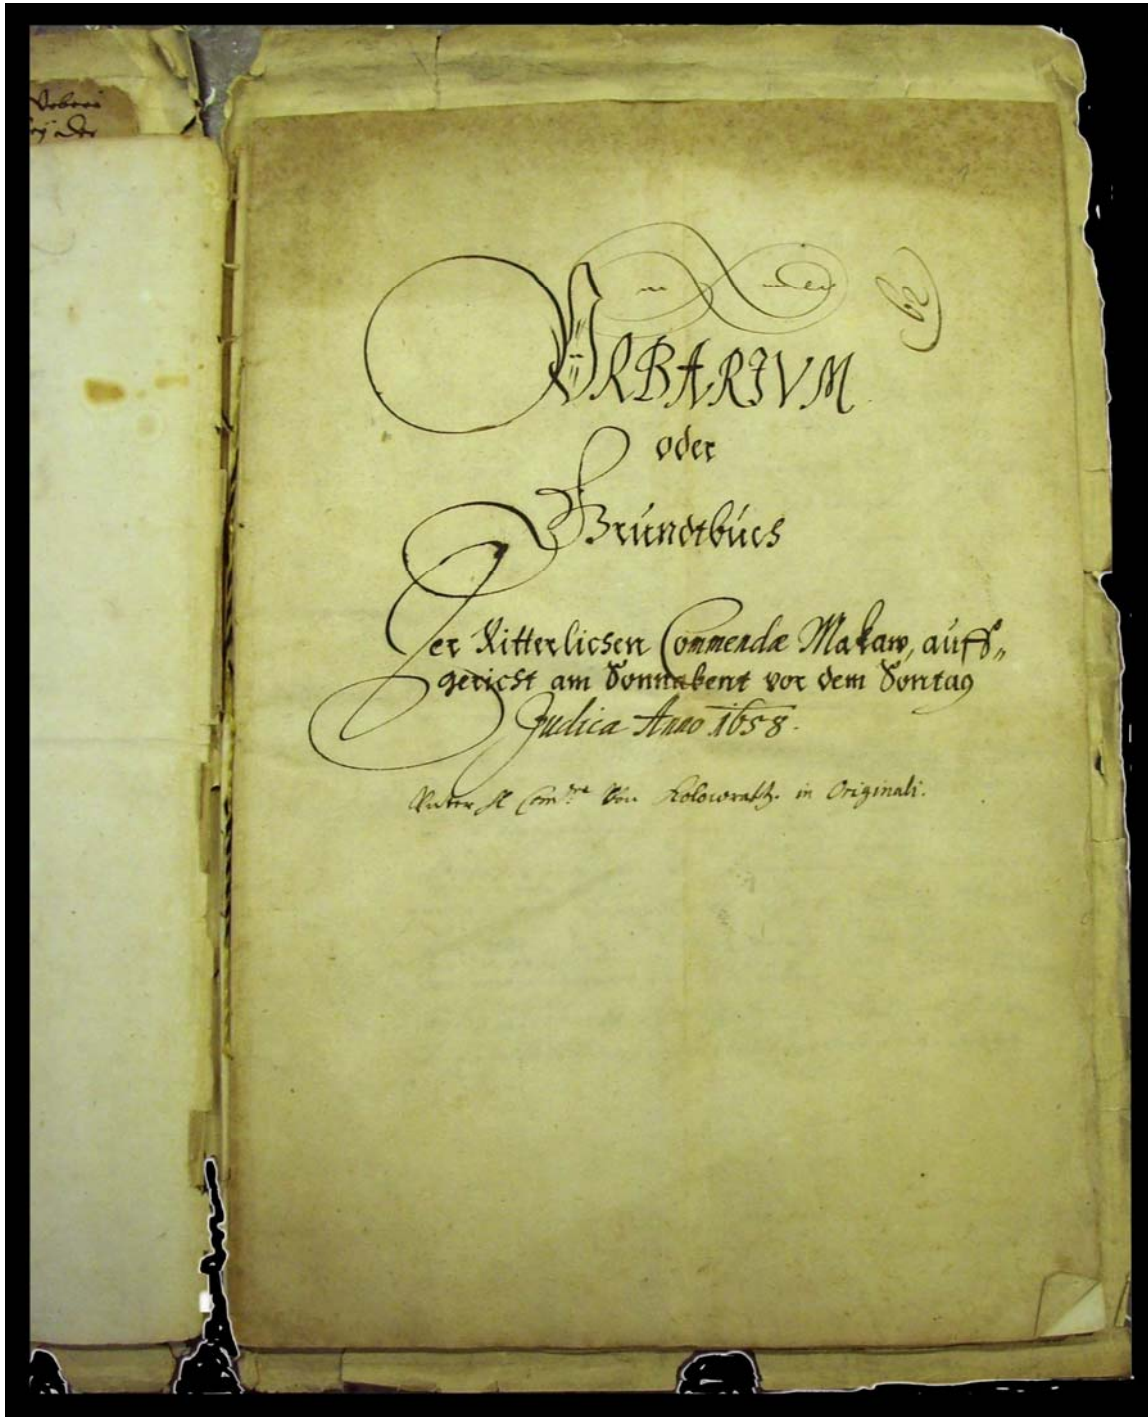 VRBARIVM
oder
Grúndtbúch
Der Ritterlichen Commendæ Makaw, auff„
gericht am Sonnabent vor dem Sontag
Judica Anno 1658.
Unter H Com:re Von Kolowrath. in Originali.